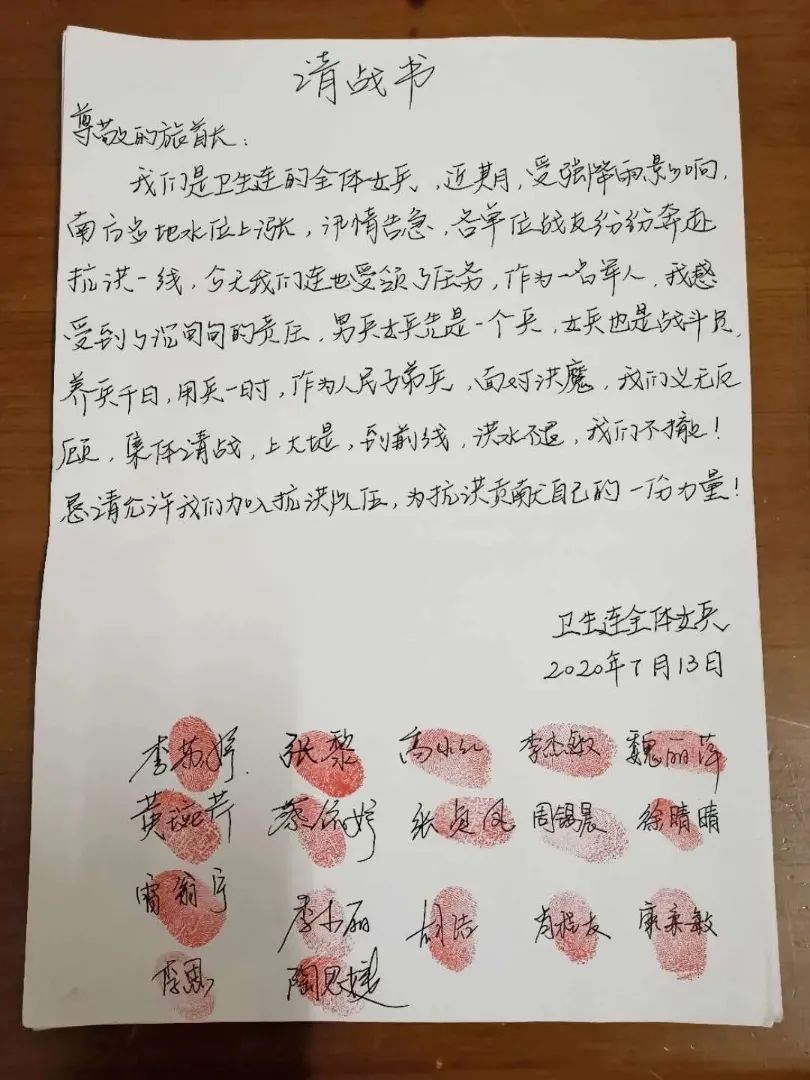 请战书
尊敬的旅首长：
我们是卫生连的全体女兵，近期月，受强降雨影响，
南方多地水位上涨，汛情告急，各单位战友纷纷奔赴
抗洪一线，今天我们连也受领了任务，作为一名军人，我感
受到了沉甸甸的责任，男兵女兵先是一个兵，女兵也是战斗员，
养兵千日，用兵一时，作为人民子弟兵，面对洪魔，我们义无反
顾，集体请战，上大堤，到前线，洪水不退，我们不撤！
恳请允许我们加入抗洪队伍，为抗洪贡献自己的一份力量！
卫生连全体女兵
2020年7月13日
李 婷 张黎 高小红 李杰敏 魏丽萍
黄 芹 蔡 婷 张贞凤 周锡晨 徐晴晴
李小丽 胡洁 肖程友 康柔敏
李恩 陶思媛